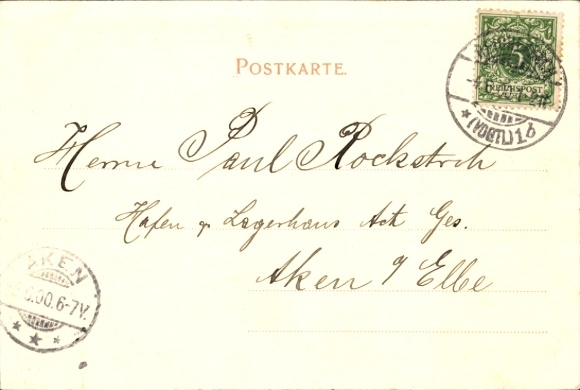 POSTKARTE.
5
REICHSPOST
(VOGTL)
Herrn Paul Rockstroh
Hafen & Lagerhaus Act Ges.
Aken a/ Elbe
AKEN
00.6-7V.